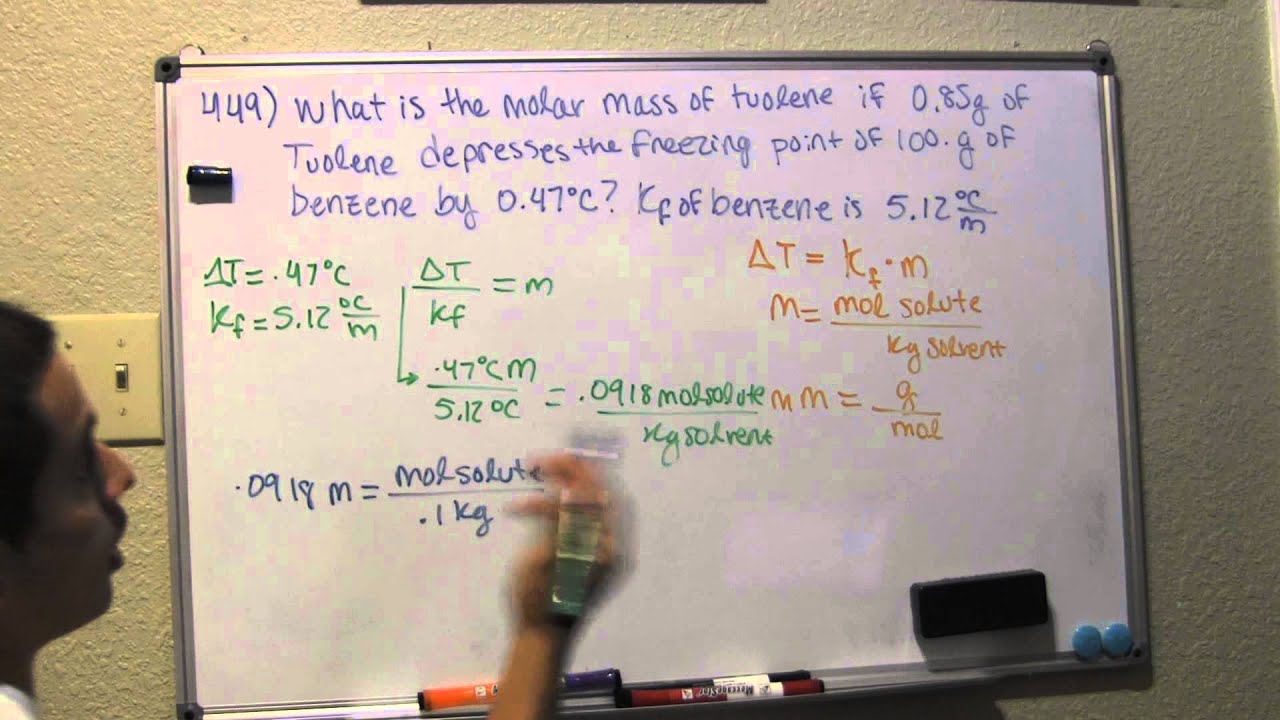 449) What is the molar mass of tuolene if 0.85g of
Tuolene depresses the freezing point of 100. g of
benzene by 0.47°C? Kf of benzene is 5.12 °C/m
ΔT = .47°C
Kf = 5.12 °C/m
ΔT/kf = m
.47°C m/5.12 °C = .0918 mol solute/kg solvent
.0918 m = mol solute/.1 kg
ΔT = Kf · m
m = mol solute/kg solvent
m m = g/mol